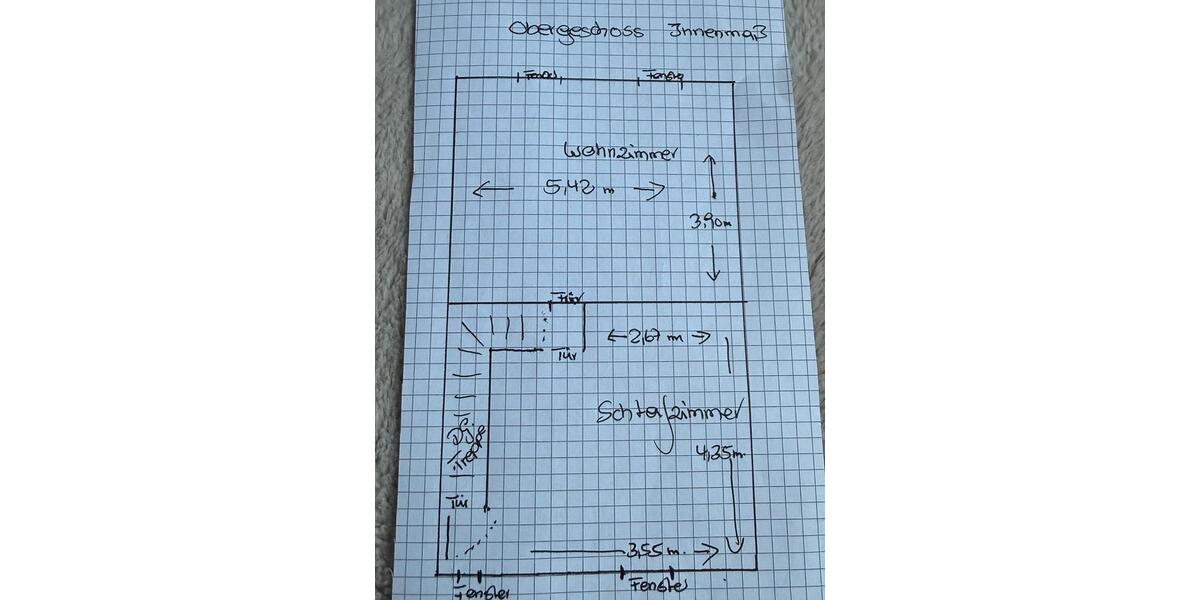 Obergeschoss Innenmaß
Fenster Fenster
Wohnzimmer
5,42 m
3,90m
Tür
2,67 m
Tür
Schlafzimmer
DG
Treppe
4,35m.
Tür
3,55 m.
Fenster Fenster